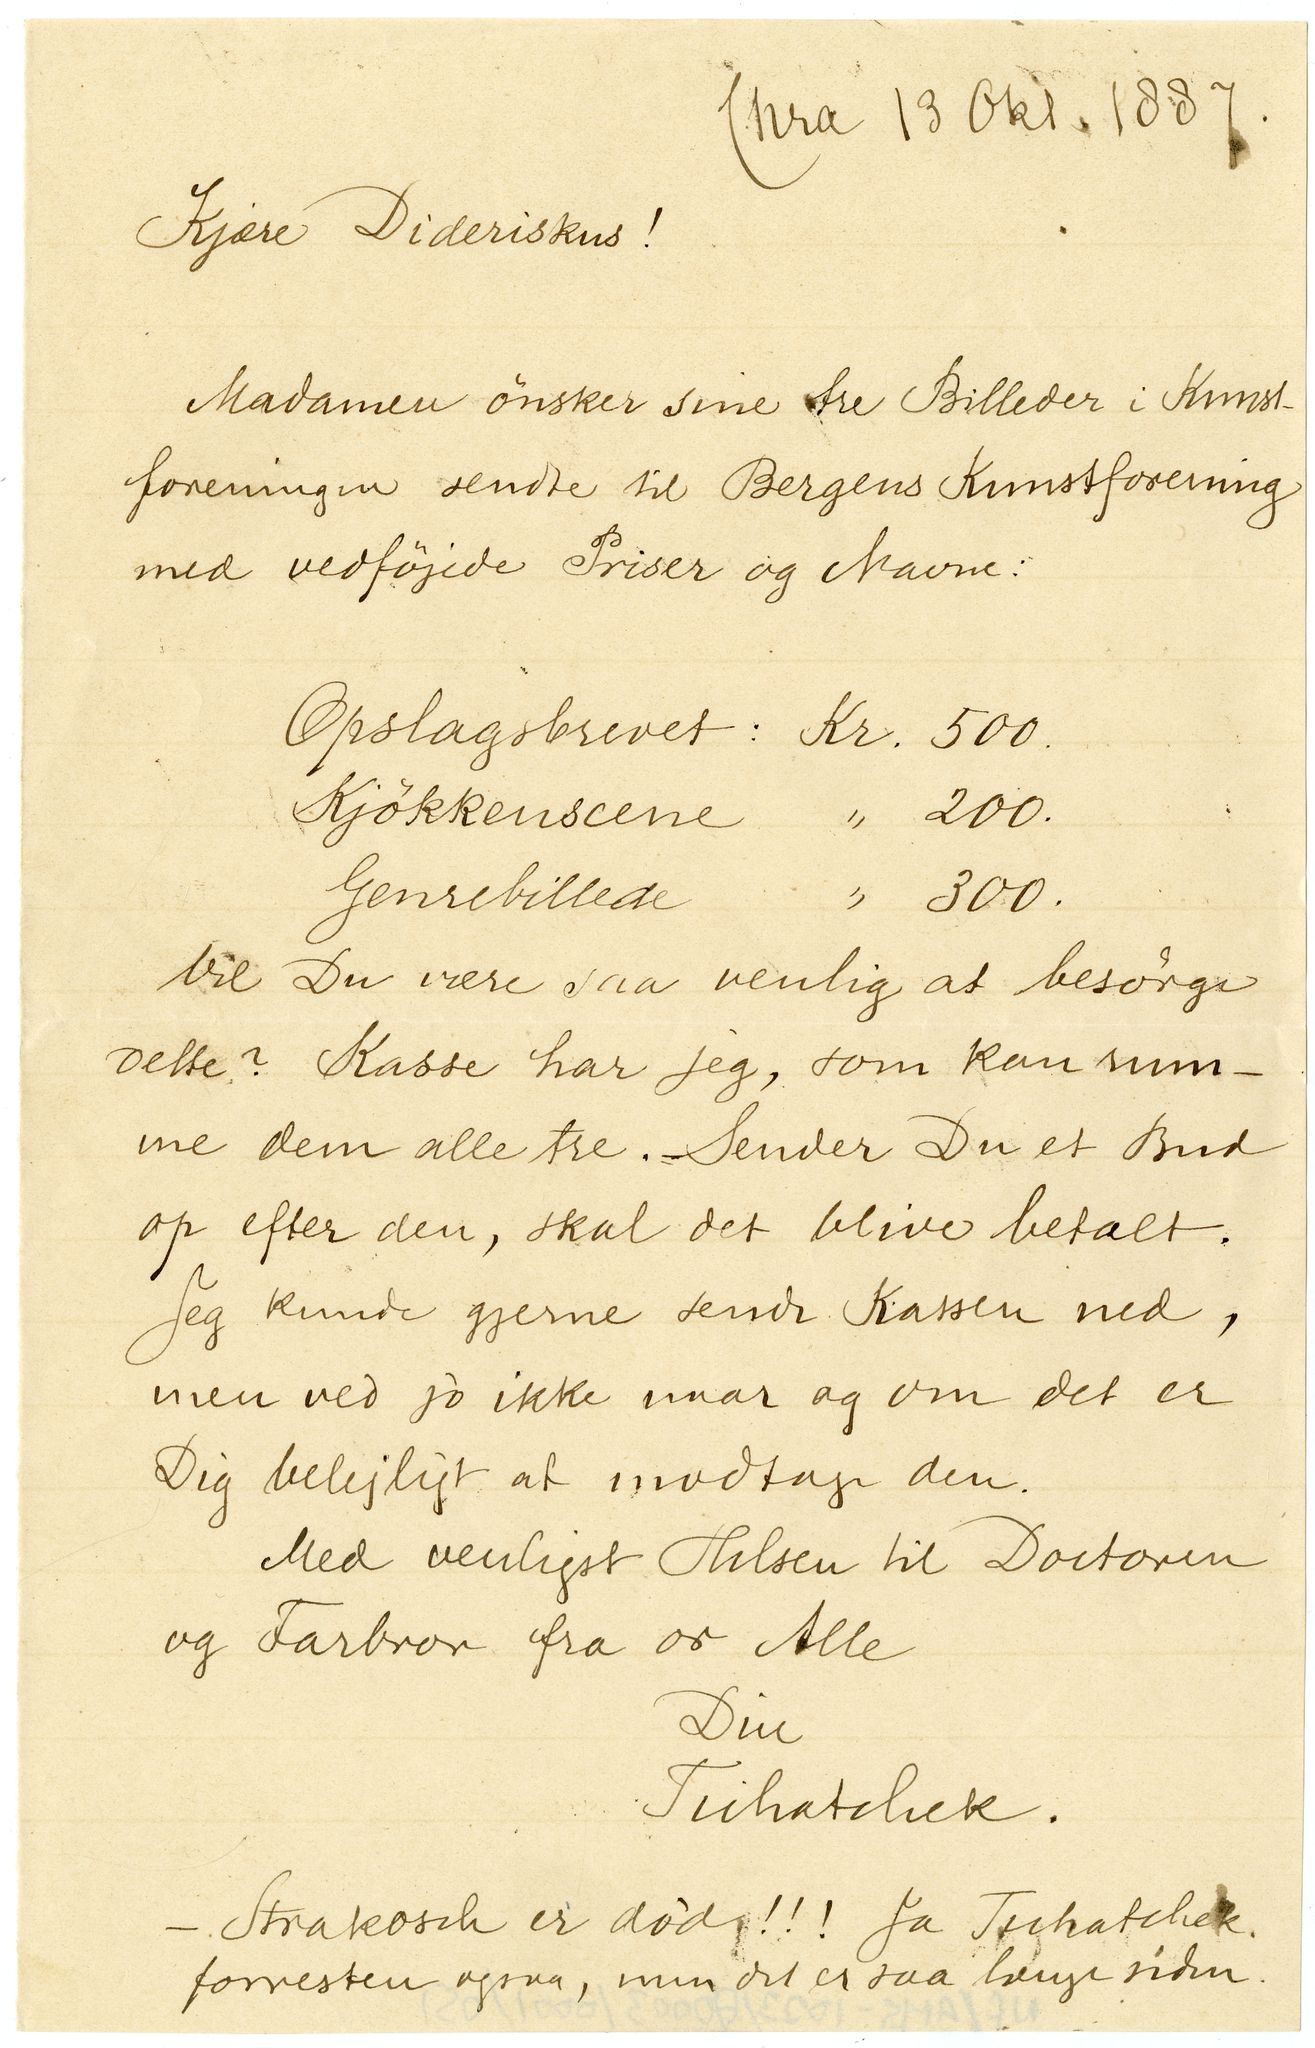 Chra 13 Okt. 1887.
Kjære Dideriskus!
Madamen önsker sine tre Billeder i Kunst-
foreningen sendte til Bergens Kunstforening
med vedföjede Priser og Navne:
Opslagsbrevet: Kr. 500.
Kjökkenscene " 200.
Genrebillede " 300.
Vil Du være saa venlig at besörge
dette? Kasse har jeg, som kan rum-
me dem alle tre. – Sender Du et Bud
op efter den, skal det blive betalt.
Jeg kunde gjerne sende Kassen ned,
men ved jo ikke naar og om det er
Dig belejligt at modtage den.
Med venligst Hilsen til Doctoren
og Farbror fra os Alle
Din
Tichatchek.
– Strakosch er död!!! Ja Tichatchek
forresten ogsaa, men det er saa længe siden.